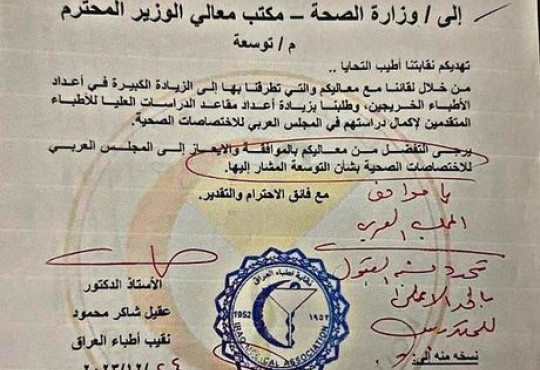 إلى / وزارة الصحة – مكتب معالي الوزير المحترم
م / توسعة
تهديكم نقابتنا أطيب التحايا ..
من خلال لقائنا مع معاليكم والتي تطرقنا بها إلى الزيادة الكبيرة في أعداد
الأطباء الخريجين، وطلبنا بزيادة أعداد مقاعد الدراسات العليا للأطباء
المتقدمين لإكمال دراستهم في المجلس العربي للاختصاصات الصحية.
يرجى التفضل من معاليكم بالموافقة والايعاز إلى المجلس العربي
للاختصاصات الصحية بشأن التوسعة المشار إليها.
مع فائق الاحترام والتقدير.
المجلس العربي
القبول
الأستاذ الدكتور
عقيل شاكر محمود
نقيب أطباء العراق
٢٠٢٣/١٢/٢٤
نقابة اطباء العراق
1952
١٩٥٢
IRAQ MEDICAL ASSOCIATION
نسخه منه إلى: